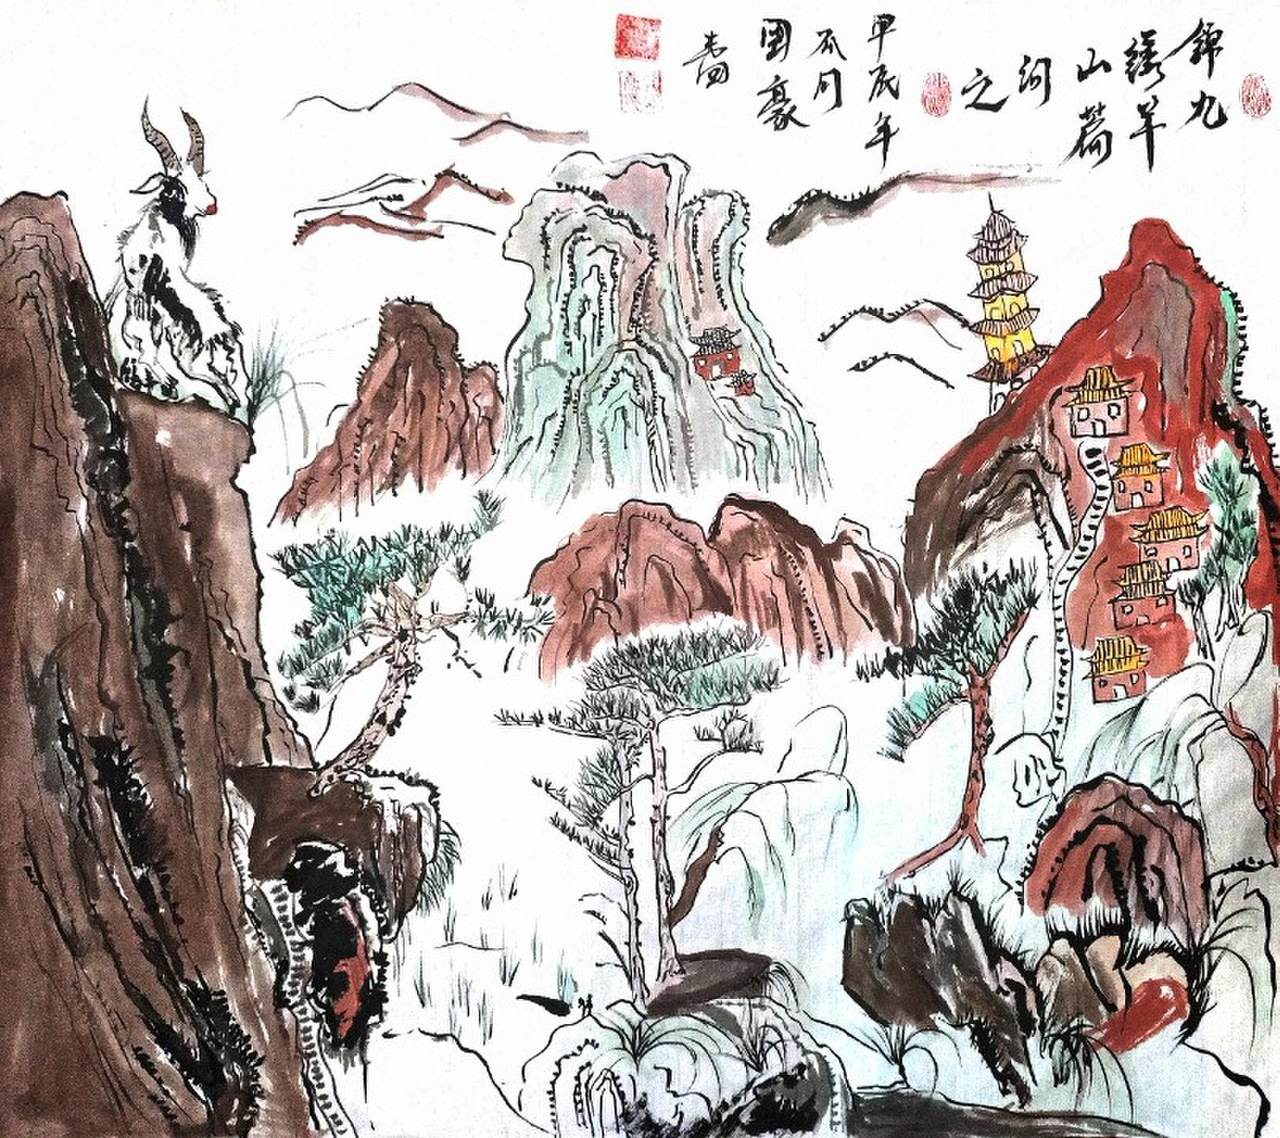 錦綉山河之
九羊篇
甲辰年
瓜月
国豪